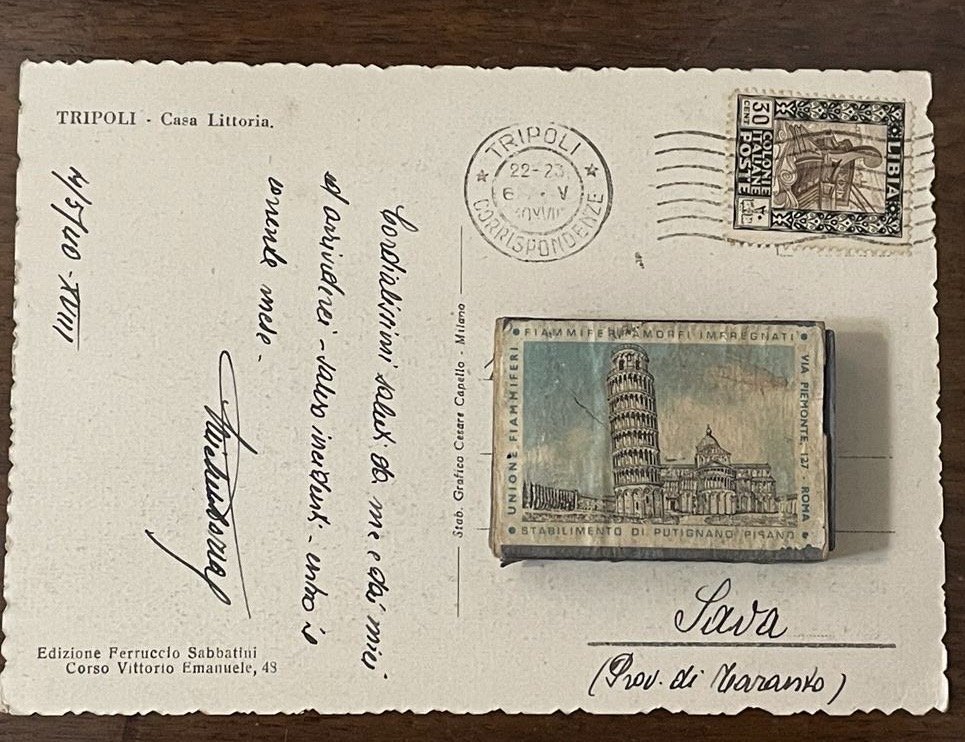 TRIPOLI - Casa Littoria.
4/5/40 - XVIII
Cordialissimi saluti da me e dai miei
ed arrivederci - salvo incidenti - entro il
corrente mese -
Edizione Ferruccio Sabbatini
Corso Vittorio Emanuele, 48
Stab. Grafico Cesare Capello - Milano
TRIPOLI
22-23
6 V
CORRISPONDENZE
30
CENT
COLONIE
ITALIANE
POSTE
LIBIA
FIAMMIFERI AMORFI IMPREGNATI
UNIONE FIAMMIFERI
VIA PIEMONTE, 127 - ROMA
STABILIMENTO DI PUTIGNANO PISANO
Sava
(Prov. di Taranto)